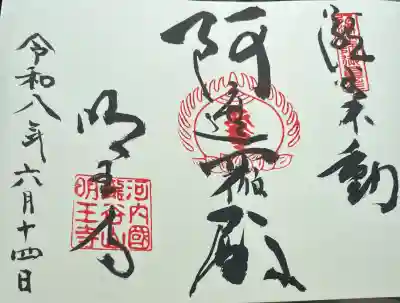 瀧谷不動
阿遮羅殿
明王寺
河内國
瀧谷山
明王寺
令和八年六月十四日